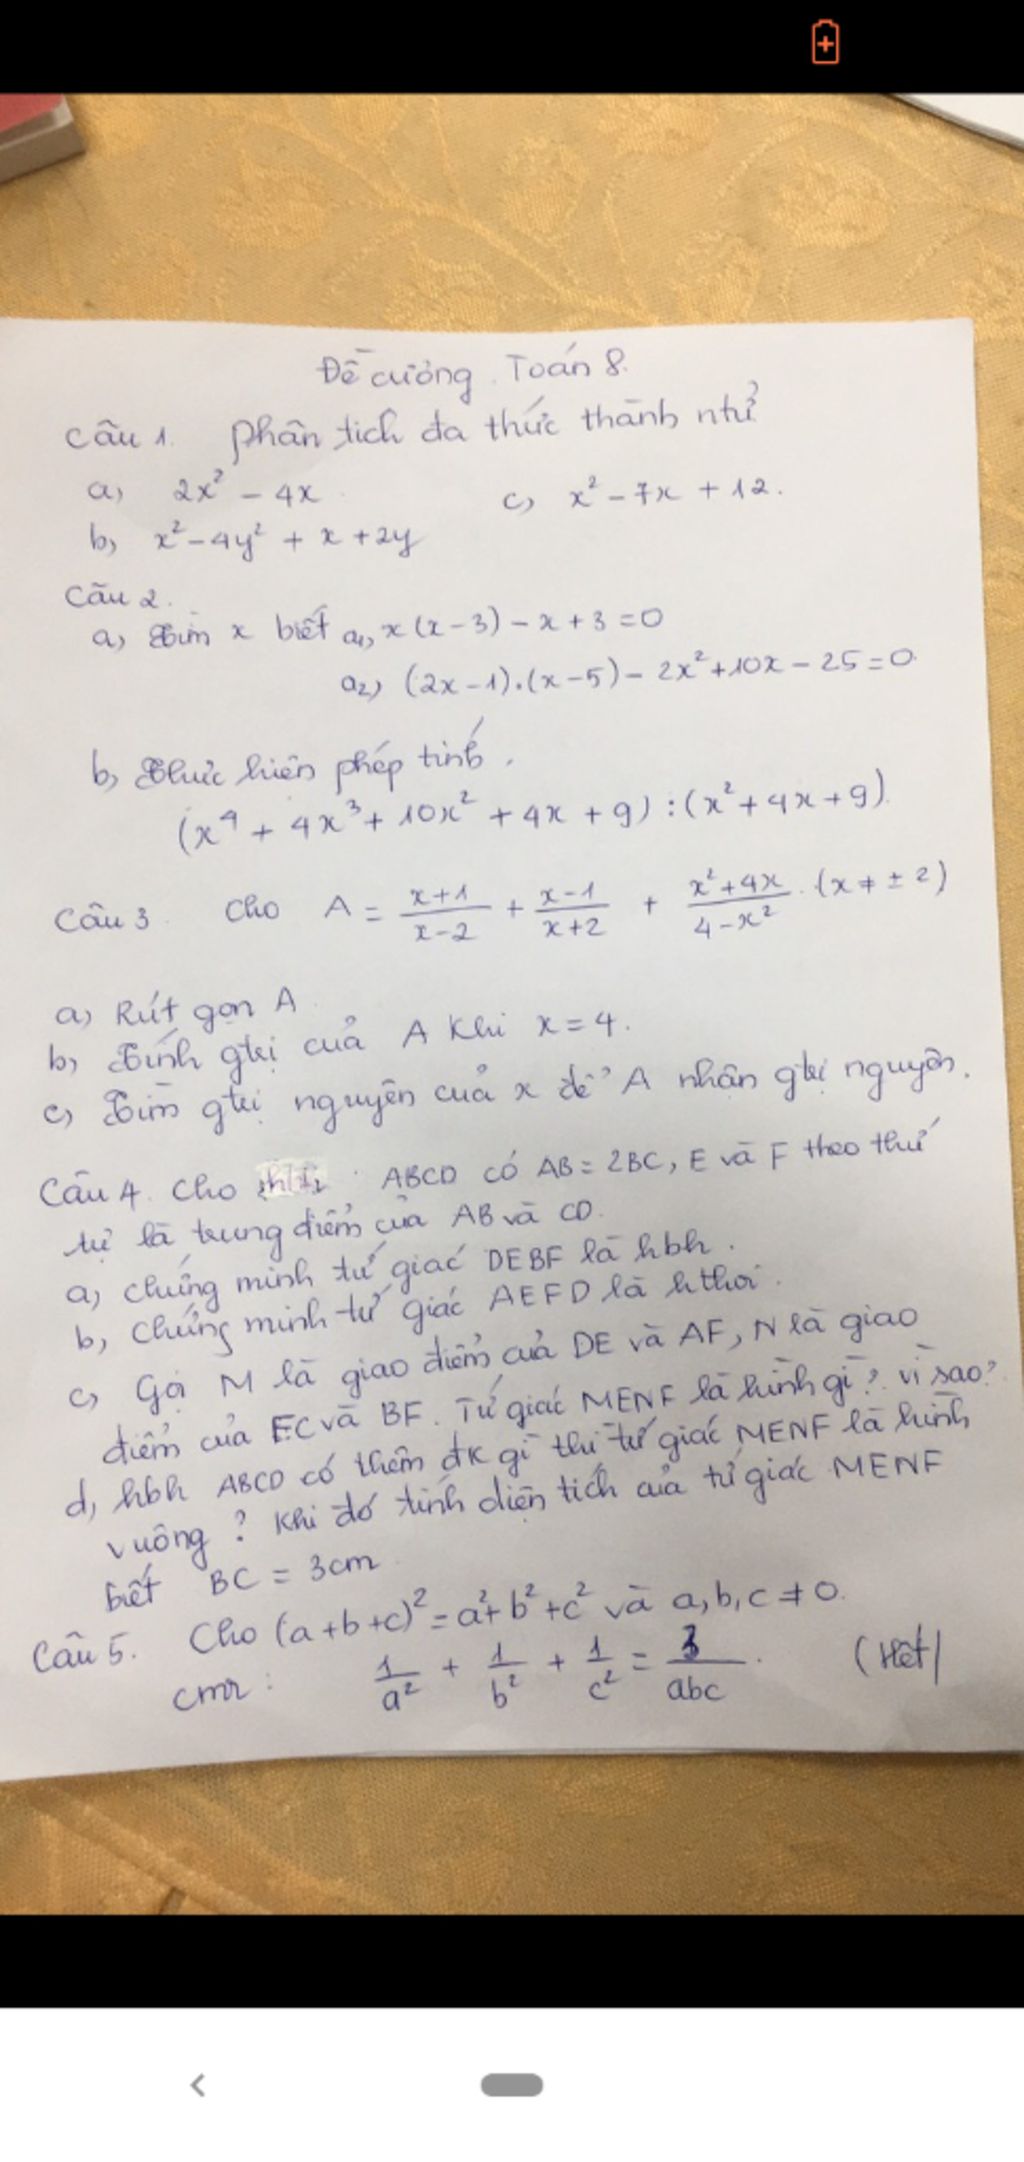 Đề cương Toán 8.
Câu 1. Phân tích đa thức thành ntử
a) 2x² - 4x
c) x² - 7x + 12.
b) x² - 4y² + x + 2y
Câu 2.
a) Tìm x biết a₁) x(x-3) - x + 3 = 0
a₂) (2x-1).(x-5) - 2x² + 10x - 25 = 0
b) Thực hiện phép tính.
(x⁴ + 4x³ + 10x² + 4x + 9) : (x² + 4x + 9)
Câu 3. Cho A = (x+1)/(x-2) + (x-1)/(x+2) + (x²+4x)/(4-x²) . (x ≠ ± 2)
a) Rút gọn A
b) Tính gtrị của A khi x = 4.
c) Tìm gtrị nguyên của x để A nhận gtrị nguyên.
Câu 4. Cho ABCD có AB = 2BC, E và F theo thứ
tự là trung điểm của AB và CD.
a) Chứng minh tứ giác DEBF là hbh.
b) Chứng minh tứ giác AEFD là hthoi.
c) Gọi M là giao điểm của DE và AF, N là giao
điểm của EC và BF. Tứ giác MENF là hình gì? vì sao?
d) hbh ABCD có thêm đk gì thì tứ giác MENF là hình
vuông? Khi đó tính diện tích của tứ giác MENF
biết BC = 3cm
Câu 5. Cho (a+b+c)² = a² + b² + c² và a, b, c ≠ 0.
cmr: 1/a² + 1/b² + 1/c² = 3/abc. (Hết)